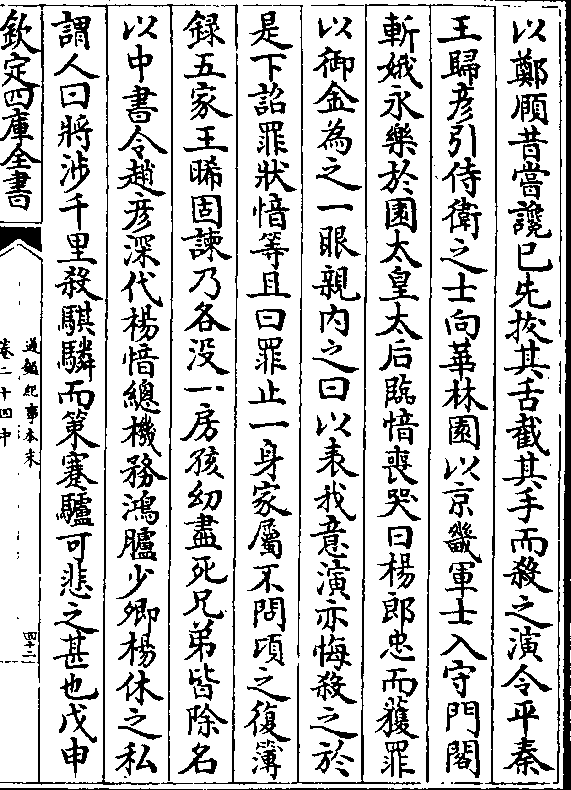 以鄭頤昔嘗讒已先拔其舌截其手而殺之演令平秦
王歸彦引侍衛之士向華林園以京畿軍士入守門閤
斬娥永樂於園太皇太后臨愔喪哭曰楊郎忠而獲罪
以御金為之一眼親内之曰以表我意演亦悔殺之於
是下詔罪狀愔等且曰罪止一身家屬不問頃之復簿
録五家王晞固諫乃各没一房孩幼盡死兄弟皆除名
以中書令趙彦深代楊愔總機務鴻臚少卿楊休之私
謂人曰將涉千里殺騏驎而策蹇驢可悲之甚也戊申
欽定四庫全書
通鑑紀事本末
卷二十四中
四十二